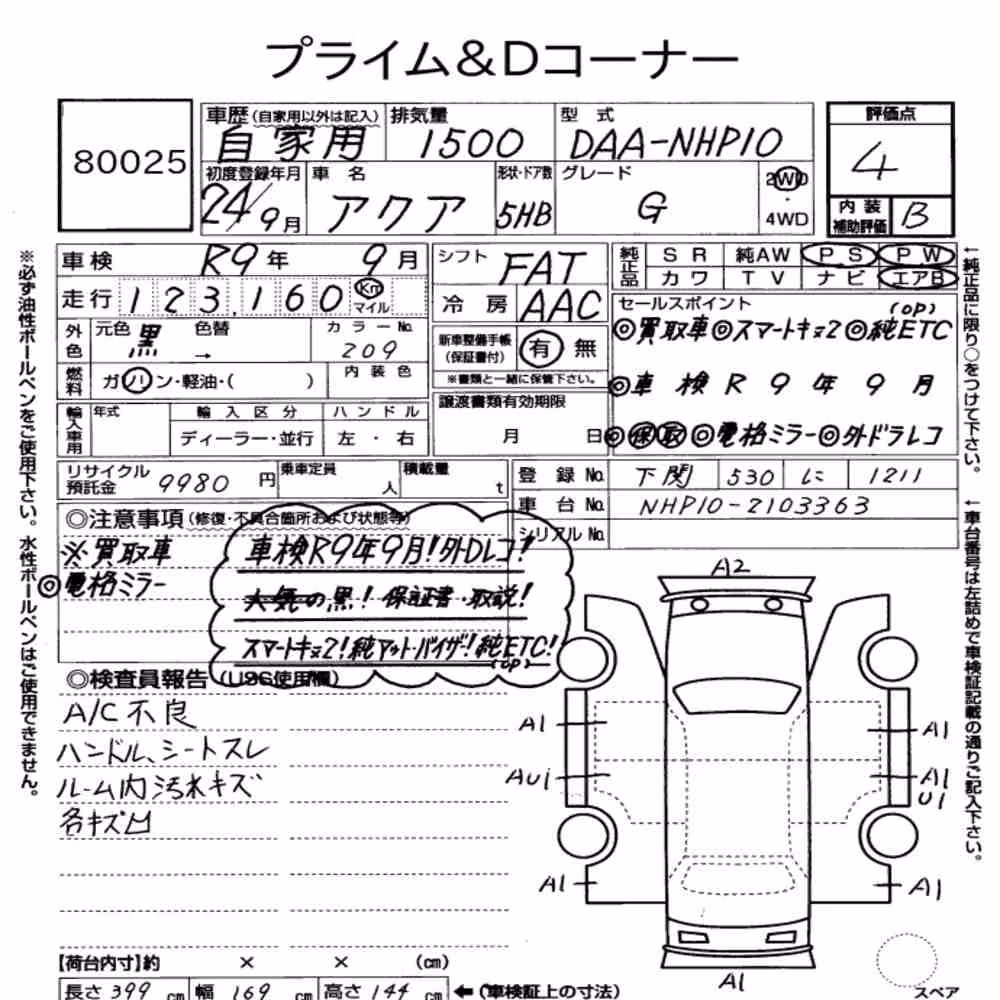 プライム&Dコーナー
80025
車歴 (自家用以外は記入) 自家用
排気量 1500
型式 DAA-NHP10
評価点 4
初度登録年月 24/9月
車名 アクア
形状・ドア数 5HB
グレード G
2WD・4WD
内装補助評価 B
車検 R9年 9月
シフト FAT
純正品 SR 純AW PS PW
カワ TV ナビ エアB
走行 123,160 Km マイル
冷房 AAC
セールスポイント (OP)
◎買取車◎スマートキー×2◎純ETC
外色 元色 黒 色替 → カラーNo. 209
新車整備手帳(保証書付) 有 無
※書類と一緒に保管下さい。
◎車検R9年9月
燃料 ガソリン・軽油・( ) 内装色
譲渡書類有効期限 月 日
◎保取◎電格ミラー◎外ドラレコ
輸入車用 年式 輸入区分 ハンドル
ディーラー・並行 左・右
リサイクル預託金 9980円
乗車定員 人
積載量 t
登録No. 下関 530 に 1211
車台No. NHP10-2103363
シリアルNo.
◎注意事項(修復・不具合箇所および状態等)
※買取車
◎電格ミラー
車検R9年9月!外Dレコ!
人気の黒!保証書・取説!
スマートキー×2!純マット・バイザー!純ETC!
(OP)
◎検査員報告(USS使用欄)
A/C不良
ハンドル、シートスレ
ルーム内汚れキズ
各キズ凹
A2
A1
A1
AU1
A1
U1
A1
A1
A1
【荷台内寸】約 × × (cm)
長さ 399 cm 幅 169 cm 高さ 144 cm ←(車検証上の寸法)
スペア
※必ず油性ボールペンをご使用下さい。水性ボールペンはご使用できません。
←純正品に限り○をつけて下さい。
←車台番号は左詰めで車検証記載の通りご記入下さい。